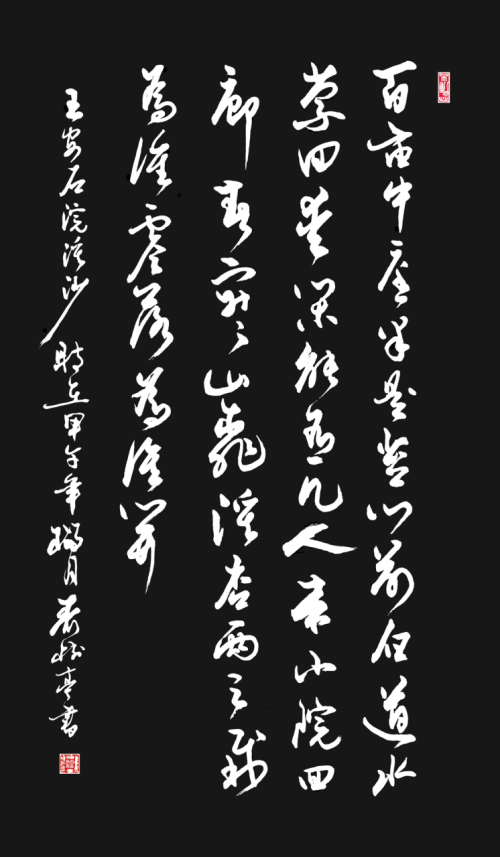 百亩中庭半是苔门前白道水
萦回爱闲能有几人来小院回
廊春寂寂山桃溪杏两三栽
為谁零落為谁开
王安石浣溪沙 時在甲午年臘月 亭書